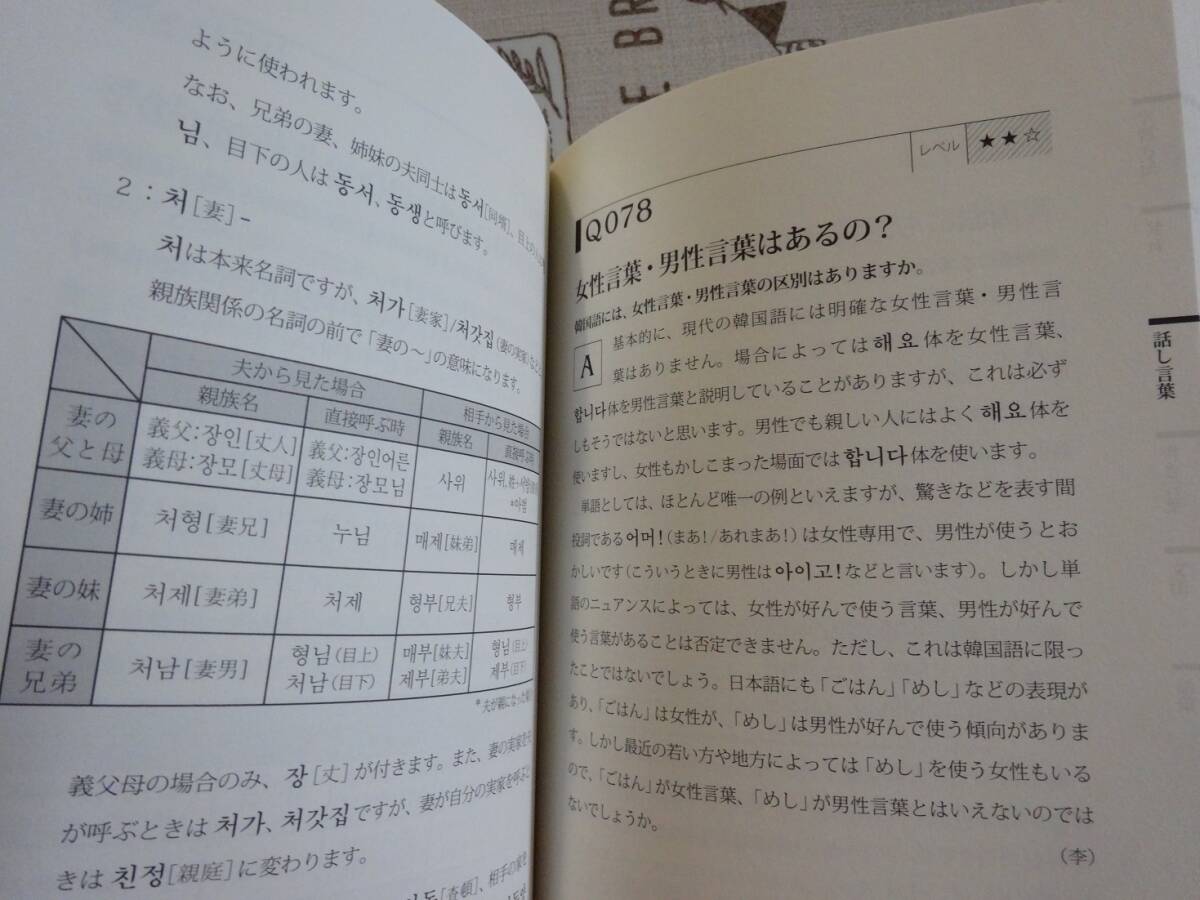 ように使われます。
なお、兄弟の妻、姉妹の夫同士は동서[同壻]、目上の
님、目下の人は동서、동생と呼びます。
2：처[妻]-
처は本来名詞ですが、처가[妻家]/처갓집(妻の実家)
親族関係の名詞の前で「妻の〜」の意味になります。
夫から見た場合
相手から見た場合
親族名
直接呼ぶ時
親族名
直接呼ぶ時
妻の
父と母
義父：장인[丈人]
義母：장모[丈母]
義父：장인어른
義母：장모님
사위
사위,
妻の姉
처형[妻兄]
누님
매제[妹弟]
매제
妻の妹
처제[妻弟]
처제
형부[兄夫]
형부
妻の
兄弟
처남[妻男]
형님(目上)
처남(目下)
매부[妹夫]
제부[弟夫]
형님(目上)
제부(目下)
義父母の場合のみ、장[丈]が付きます。また、妻の実家を
が呼ぶときは처가、처갓집ですが、妻が自分の実家を呼ぶと
きは친정[親庭]に変わります。
[査頓]、相手の家を
レベル ★★☆
Q078
女性言葉・男性言葉はあるの？
韓国語には、女性言葉・男性言葉の区別はありますか。
A
基本的に、現代の韓国語には明確な女性言葉・男性言
葉はありません。場合によっては해요体を女性言葉、
합니다体を男性言葉と説明していることがありますが、これは必ず
しもそうではないと思います。男性でも親しい人にはよく해요体を
使いますし、女性もかしこまった場面では합니다体を使います。
単語としては、ほとんど唯一の例といえますが、驚きなどを表す間
投詞である어머!(まあ!/あれまあ!)は女性専用で、男性が使うとお
かしいです(こういうときに男性は아이고!などと言います)。しかし単
語のニュアンスによっては、女性が好んで使う言葉、男性が好んで
使う言葉があることは否定できません。ただし、これは韓国語に限っ
たことではないでしょう。日本語にも「ごはん」「めし」などの表現が
あり、「ごはん」は女性が、「めし」は男性が好んで使う傾向がありま
す。しかし最近の若い方や地方によっては「めし」を使う女性もいる
ので、「ごはん」が女性言葉、「めし」が男性言葉とはいえないのでは
ないでしょうか。
(李)
話し言葉